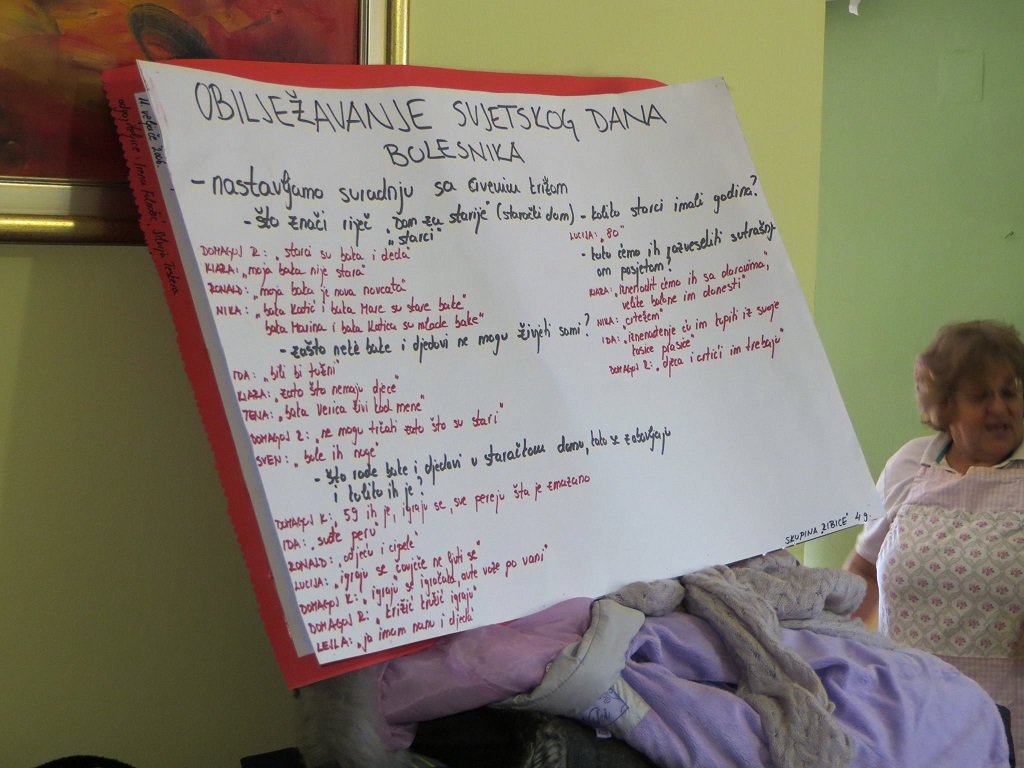 OBILJEŽAVANJE SVJETSKOG DANA
BOLESNIKA
- nastavljamo suradnju sa Crvenim križom
- što znači riječ „Dom za starije" (starački dom)
„starci"
DOMAGOJ R.: „starci su baka i deda"
KIARA: „moja baka nije stara"
RONALD: „moja baka je nova novcata"
NIKA: „baka Katić i baka Mare su stare bake"
baka Marina i baka Katica su mlade bake"
- zašto neke bake i djedovi ne mogu živjeti sami?
IDA: „bili bi tužni"
KIARA: „zato što nemaju djece"
TENA: „baka Verica živi kod mene"
DOMAGOJ R: „ne mogu trčati zato što su stari"
SVEN: „bole ih noge"
- što rade bake i djedovi u staračkom domu, kako se zabavljaju
i koliko ih je?
DOMAGOJ K: „59 ih je, igraju se, sve pereju šta je zmazano
IDA: „suđe peru"
RONALD: „odjeću i cipele"
LUCIJA: „igraju se čovječe ne ljuti se"
DOMAGOJ K: „igraju se igračaka, aute voze po vani"
DOMAGOJ R: „križić kružić igraju"
LEILA: „ja imam nanu i djeda"
- koliko starci imaju godina?
LUCIJA: „80"
- kako ćemo ih razveseliti sutrašnj
om posjetom?
KIARA: „iznenadit ćemo ih sa darovima,
velike balone im donesti"
NIKA: „crtežem"
IDA: „iznenađenje ću im kupiti iz svoje
kasice prasice"
DOMAGOJ R: „djeca i crtići im trebaju"
SKUPINA „ZIBICE" 4 g.
11. veljače
odgojiteljice: Irena